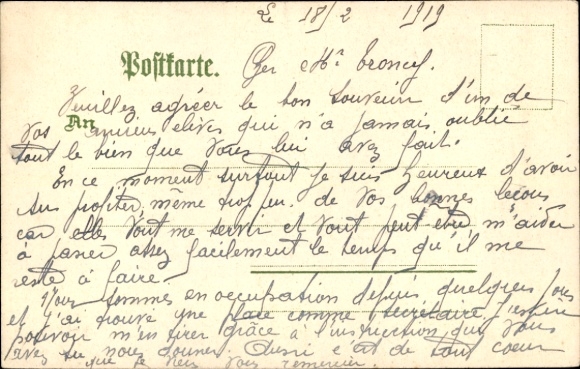 Le 18/2 1919
Postkarte. Cher Mr Troncy.
Veuillez agréer le bon souvenir d'un de
An
vos anciens elèves qui n'a jamais oublié
tout le bien que vous lui avez fait.
En ce moment surtout je suis heureux d'avoir
su profiter même trop peu de vos bonnes leçons
car elles vont me servir et vont peut-être m'aider
à passer assez facilement le temps qu'il me
reste à faire
Nous sommes en occupation depuis quelques jours
et j'ai trouvé une place comme secrétaire j'espère
pouvoir m'en tirer grâce à l'instruction que vous
avez su nous donner. Aussi c'est de tout coeur
que je viens vous remercier.